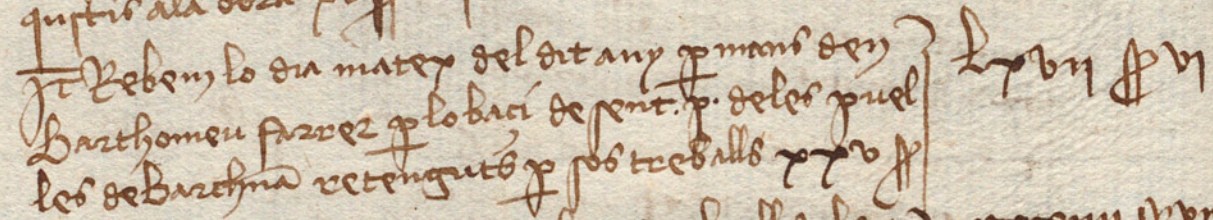 quistis ala obra
It Rebem lo dia matex del dit any p mans den
Barthomeu farrer p lo baçi de sent p. deles puel
les de Barchna retenguts p sos treballs xxv ss
Lxvii ss vi